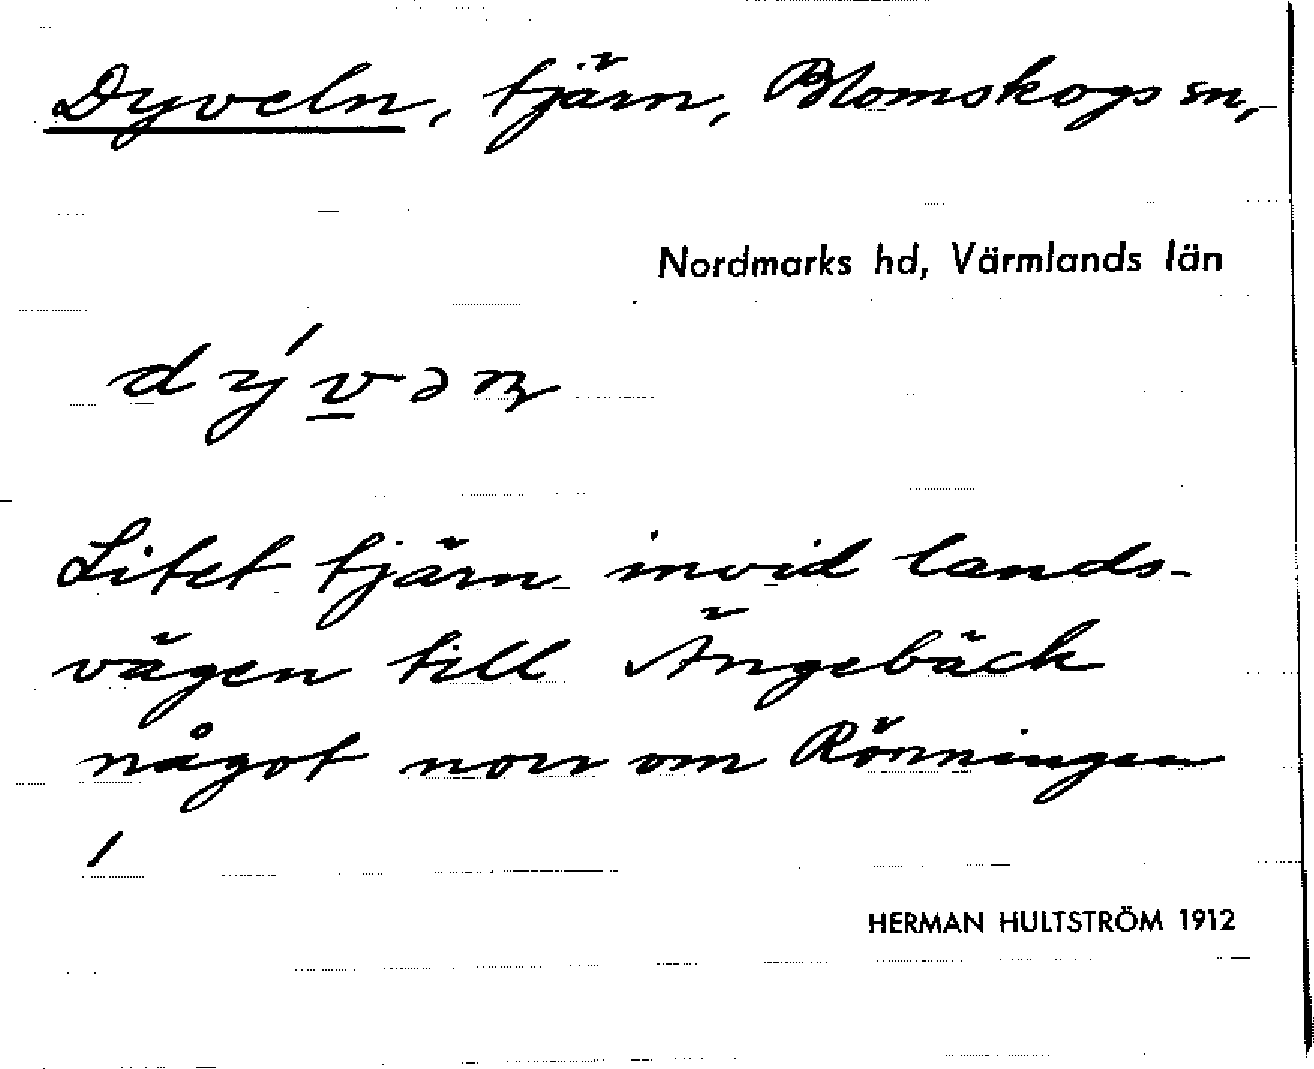 Dyveln, tjärn, Blomskogs sn,
Nordmarks hd, Värmlands län
dy´vən
Litet tjärn invid lands-
vägen till Ängebäck
något norr om Rönningen
/
HERMAN HULTSTRÖM 1912